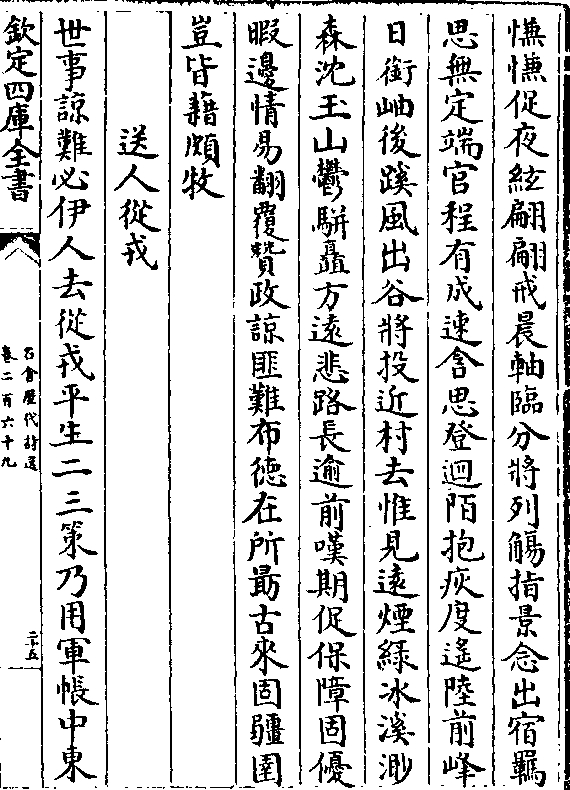 慊慊促夜絃翩翩戒晨軸臨分將列觴指景念出宿羈
思無定端官程有成速含思登迴陌抱疢度遙陸前峰
日銜岫後蹊風出谷將投近村去惟見遠煙緑冰溪渺
森沈玉山鬱駢矗方遠悲路長逾前嘆期促保障固優
暇邊情易翻覆贊政諒匪難布徳在所勗古來固疆圉
豈皆藉頗牧
送人從戎
世事諒難必伊人去從戎平生二三策乃用軍帳中東
欽定四庫全書
石倉歴代詩選
卷二百六十九
二十五